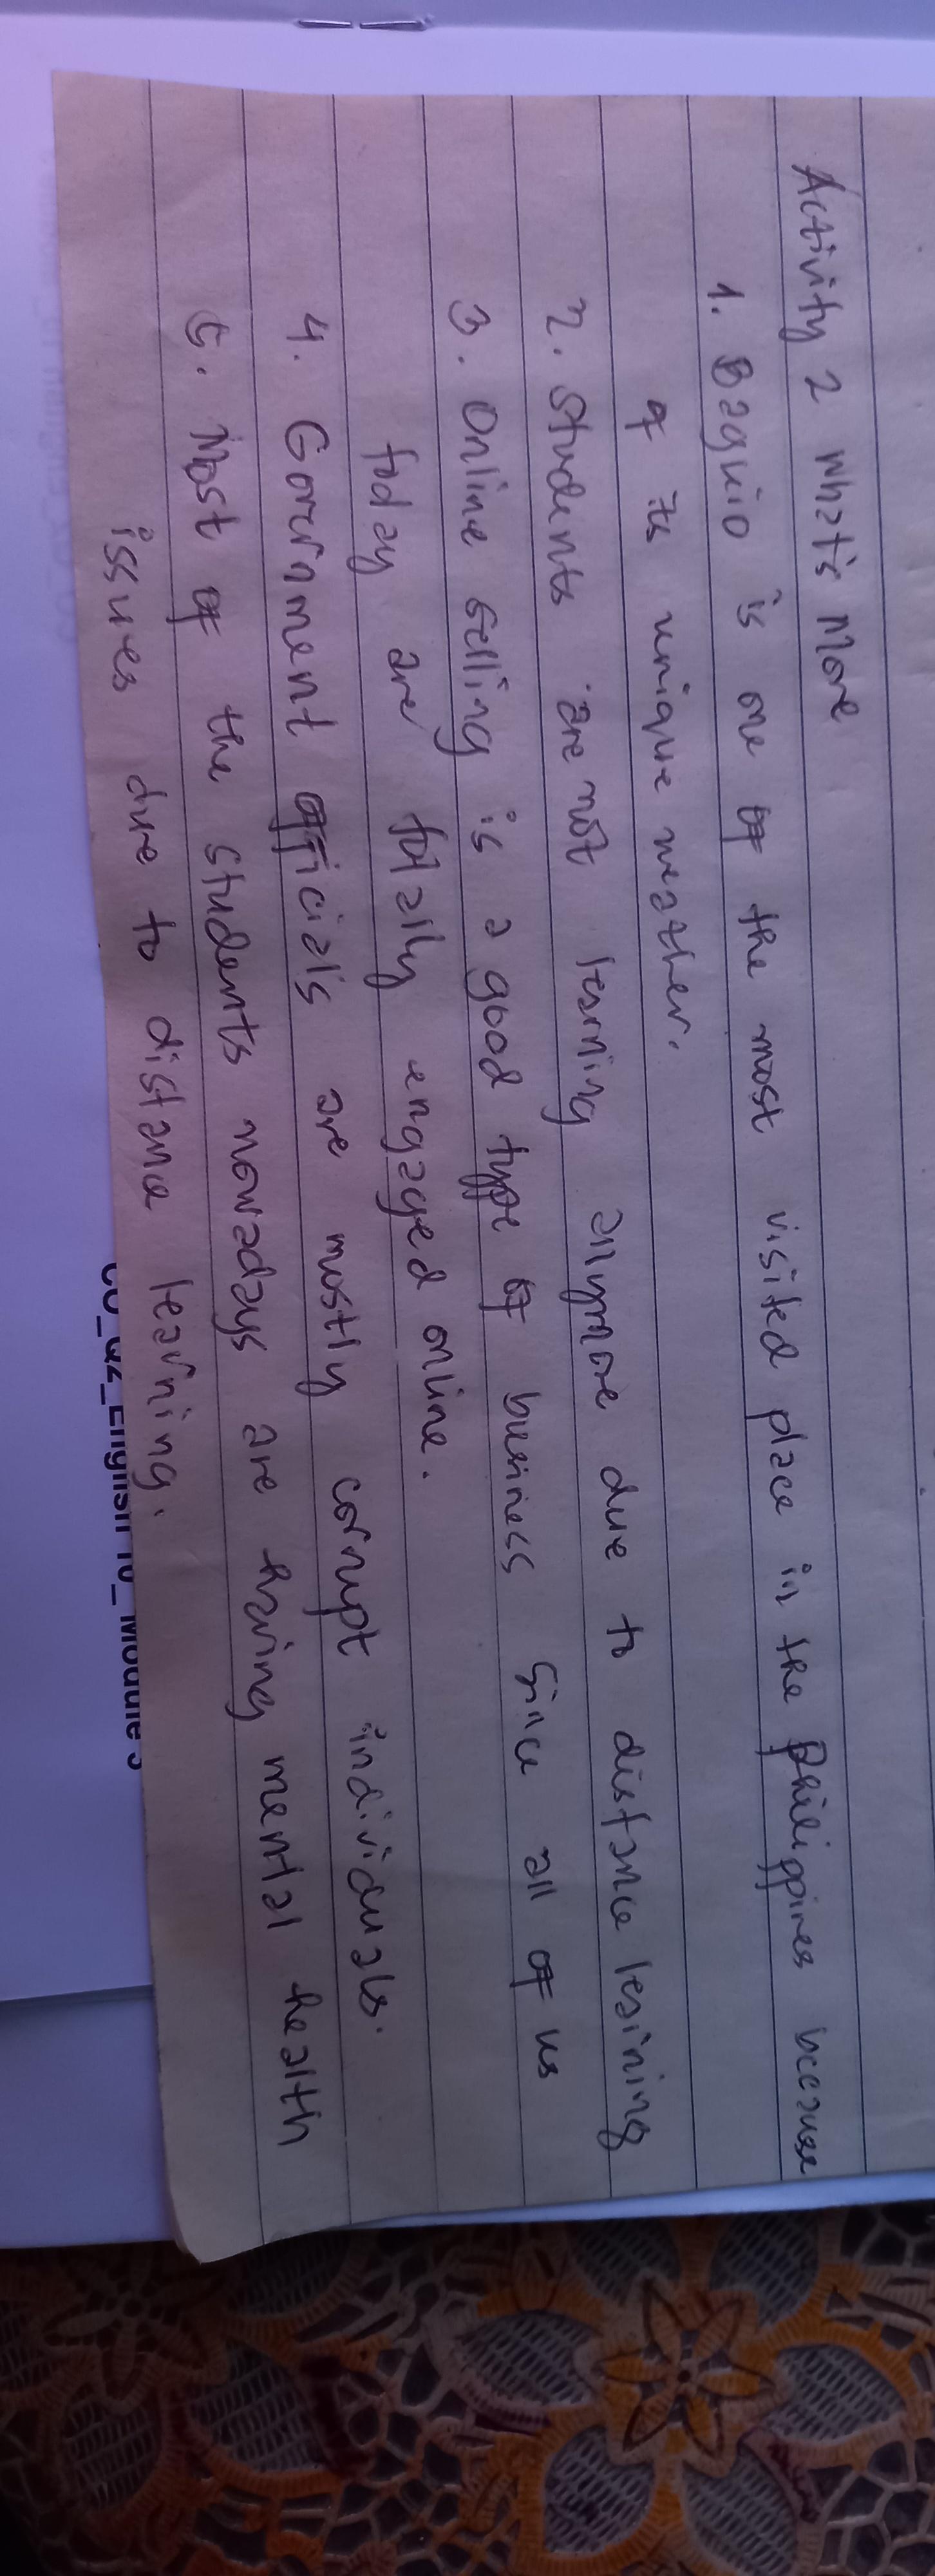 Activity 2 What's More
1. Baguio is one of the most visited place in the Philippines because
of its unique weather.
2. Students are not learning anymore due to distance leaining
3. Online selling is a good type of business since all of us
today are totally engaged online.
4. Government officials are mostly corrupt individuals.
5. Most of the students nowadays are having mental health
issues due to distance learning.
CO_Q2_English 10_ Module 3